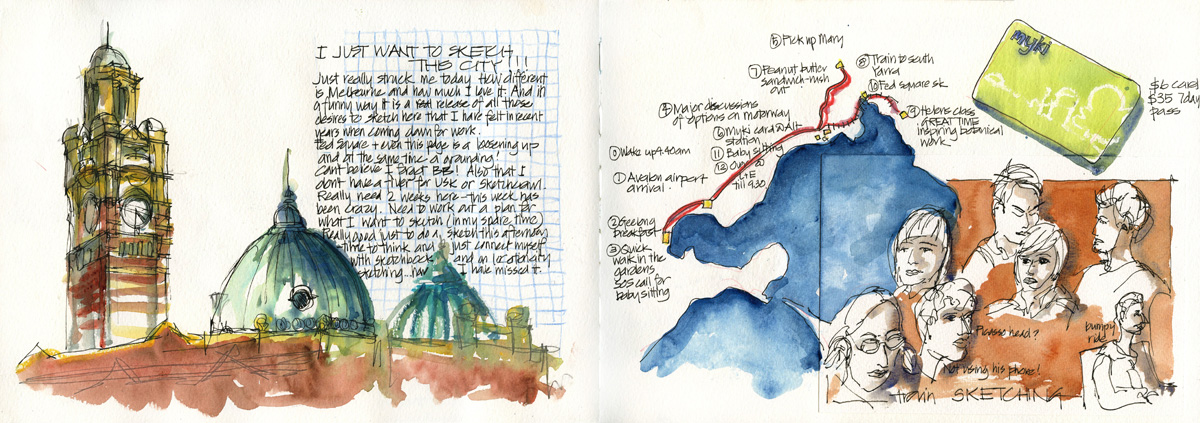 I JUST WANT TO SKETCH
THE CITY!!!
Just really struck me today how different
is Melbourne and how much I love it. And in
a funny way it is a release of all those
desires to sketch here that I have felt in recent
years when coming down for work.
Fed Square + even this page is a loosening up
and at the same time a grounding!
Cant believe I forgot BB! Also that I
dont have a flyer for USK or Sketchcrawl.
Really need 2 weeks here - this week has
been crazy. Need to work out a plan for
what I want to sketch (in my spare time)
Really good just to do a sketch this afternoon
time to think and just connect myself
with sketchbook and on location city
sketching... I have missed it.
⑤ Pick up Mary
⑦ Peanut butter
sandwich-rush
out
⑧ Train to south
Yarra
⑩ Fed square sk
④ Major discussions
of options on motorway
⑥ Myki card @ Alt
station
⑪ Baby sitting
⑫
L+E
till 9.30
⑨ Helens class
GREAT TIME
inspiring botanical
work
⓪ Wake up 4.40am
① Avalon airport
arrival.
② Geelong
breakfast
③ Quick
walk in the
gardens
SOS call for
babysitting
myki
$6 card
$35 7day
pass
Picasso head?
bumpy
ride
Not using his phone!
train SKETCHING